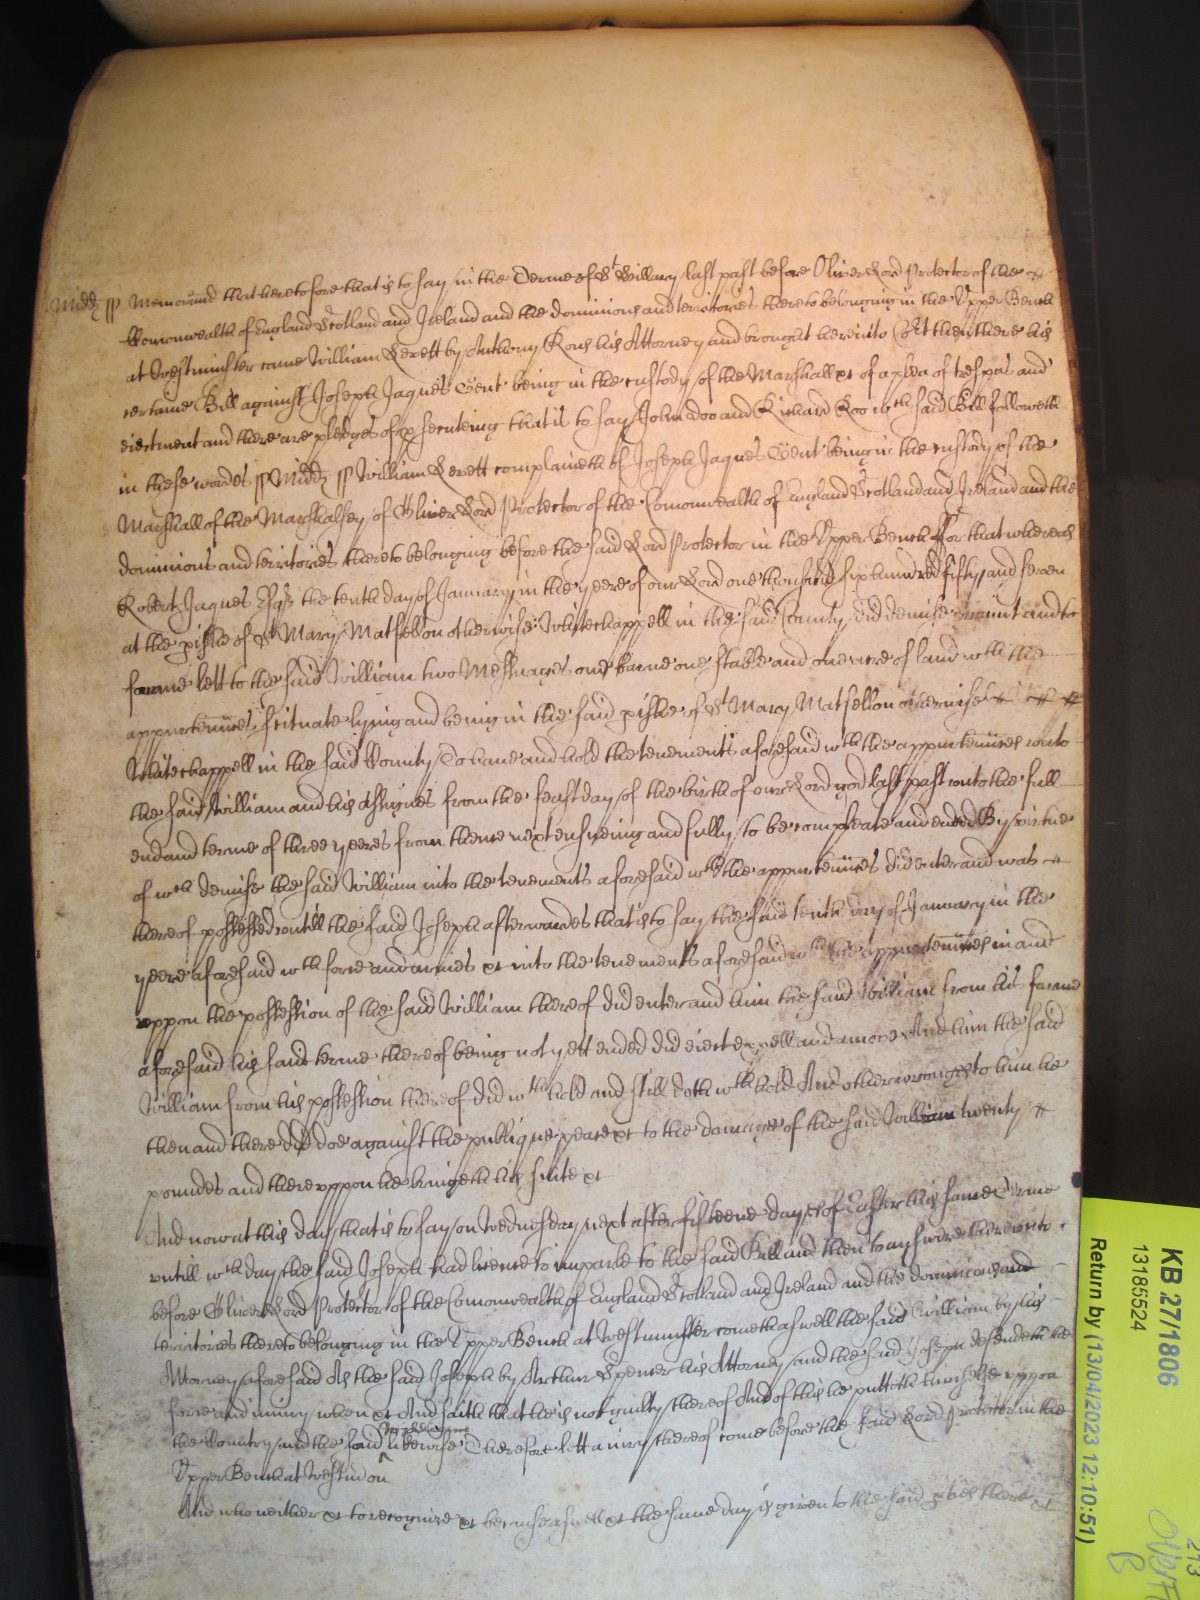 Midd ss Memorand that heretofore that is to say in the Terme of St Hillary last past before Oliver Lord Protector of the
Comonwealth of England Scotland and Ireland and the dominions and territories thereto belonging in the Upper Bench
at Westminster came William Everett by Anthony his Attorney and brought here into Court then there his
certaine Bill against Joseph Jaques Gent being in the custody of the Marshall &c of a plea of trespas and
eiectment and there are pledges of psecuteing that is to say John Doo and Richard Roo wch said Bill followeth
in these wordes ss Midd ss William Everett complaineth of Joseph Jaques Gent being in the custody of the
Marshall of the Marshalsey of Oliver Lord Protector of the Comonwealth of England Scotland and Ireland and the
dominions and territories thereto belonging before the said Lord Protector in the Upper Bench For that whereas
Robert Jaques Esqr the tenth day of January in the yeere of our Lord one thousand six hundred fifty and seven
at the pishe of St Mary Matfellon otherwise Whitechappell in the said County did demise graunt and to
farme lett to the said William two Messuages one barne one stable and one acre of land wth the
appurtenñces scituate lying and being in the said pishe of St Mary Matfellon otherwise
Whitechappell in the said County To have and hold the tenements aforesaid wth the appurtenñces unto
the said William and his assignes from the feast day of the birth of our Lord god last past unto the full
end and terme of three yeeres from thence next ensueing and fully to be compleate and ended By virtue
of wch demise the said William into the tenements aforesaid wth the appurtenñces did enter and was
thereof possessed untill the said Joseph afterwardes that is to say the said tenth day of January in the
yeere aforesaid wth force and armes &c into the tenements aforesaid wth the appurtenñces in and
uppon the possession of the said William thereof did enter and him the said William from his farme
aforesaid his said terme thereof being not yett ended did eiect expell and amove And him the said
William from his possession thereof did wthhold and still doth wthhold And other wronges to him he
then and there did doe against the publique peace &c to the damage of the said William twenty
poundes and thereuppon he bringeth his suite &c
And now at this day that is to say on Wednesday next after fifteene dayes of Easter this same Terme
untill wch day the said Joseph had licence to imparle to the said Bill and then to answere thereunto
before Oliver Lord Protector of the Comonwealth of England Scotland and Ireland and the dominions and
territories thereto belonging in the Upper Bench at Westminster cometh aswell the said William by his
Attorney aforesaid As the said Joseph by Arthur Spencer his Attorney and the said Joseph defendeth the
force and iniury when &c And saith that he is not guilty thereof And of this he putteth himselfe uppon
the Country and the said likewise Therefore lett a iury thereof come before the said Lord Protector in the
Upper Bench at Westm on
And who neither &c to recognize &c because aswell &c the same day is given to the said pties there &c
KB 27/1806
13185524
Return by (13/04/2023 12:10:51)
213
B